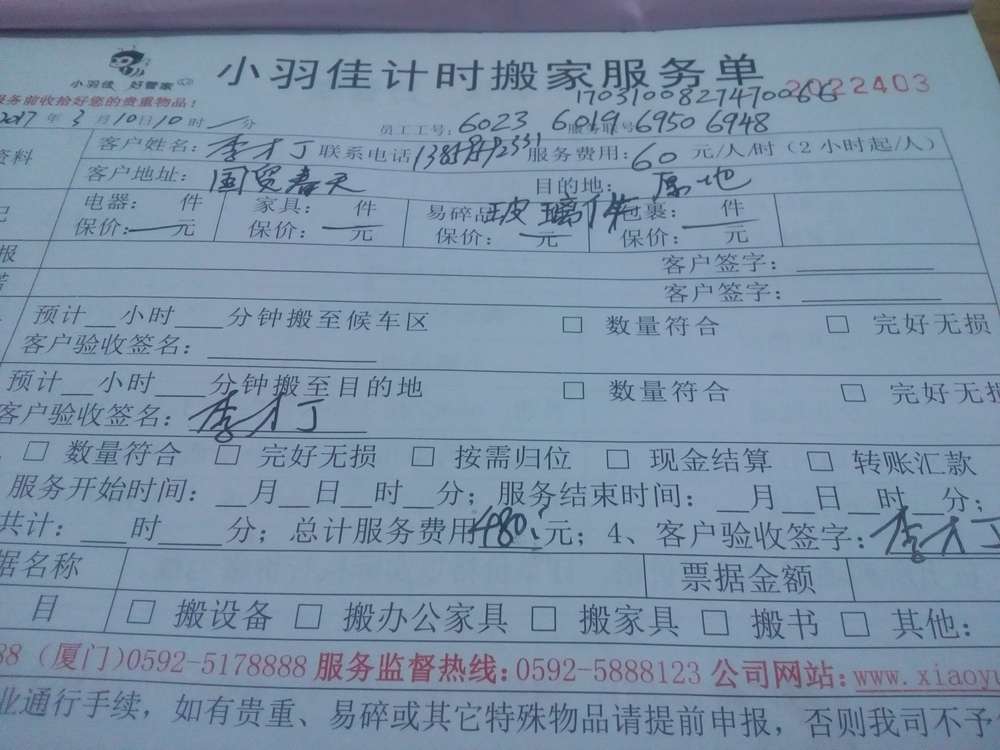 小羽佳 好管家
小羽佳计时搬家服务单
2022403
服务前收拾好您的贵重物品！
17031008274700666
2017年3月10日10时一分 员工工号：6023 6019 6950 6948
资料 客户姓名：李才丁 联系电话 服务费用：60元/人/时（2小时起/人）
客户地址：国贸春天 目的地：原地
电器： 件 家具： 件 易碎品 玻璃 件 包裹： 件
保价： 元 保价： 元 保价： 元 保价： 元
报 客户签字：
客户签字：
预计__小时___分钟搬至候车区 □ 数量符合 □ 完好无损
客户验收签名：
预计__小时___分钟搬至目的地 □ 数量符合 □ 完好无损
客户验收签名：李才丁
□ 数量符合 □ 完好无损 □ 按需归位 □ 现金结算 □ 转账汇款
服务开始时间：__月__日__时__分；服务结束时间：__月__日__时__分；
共计：___时___分；总计服务费用480元；4、客户验收签字：李才丁
据名称 票据金额
目 □ 搬设备 □ 搬办公家具 □ 搬家具 □ 搬书 □ 其他：
88（厦门）0592-5178888 服务监督热线：0592-5888123 公司网站：www.xiaoyu
业通行手续，如有贵重、易碎或其它特殊物品请提前申报，否则我司不予